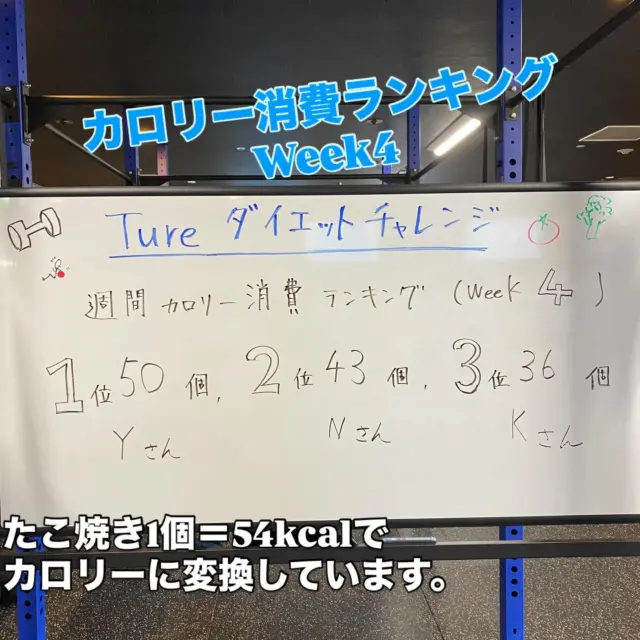 カロリー消費ランキング
Week4
Ture ダイエットチャレンジ
週間 カロリー消費 ランキング (Week 4)
1位 50 個, 2位 43 個, 3位 36 個
Yさん Nさん Kさん
たこ焼き1個=54kcalで
カロリーに変換しています。